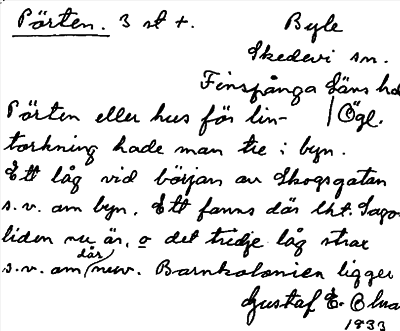 Pörten. 3 st +. Byle
Skedevi sn.
Finspånga läns hd
Pörten eller hus för lin- Ögl.
torkning hade man tre i byn.
Ett låg vid början av Skogsgatan
s.v. om byn. Ett fanns där lht. Sago
liden nu är, o det tredje låg strax
s.v. om där nuv. Barnkolonien ligger
Gustaf E.
1833